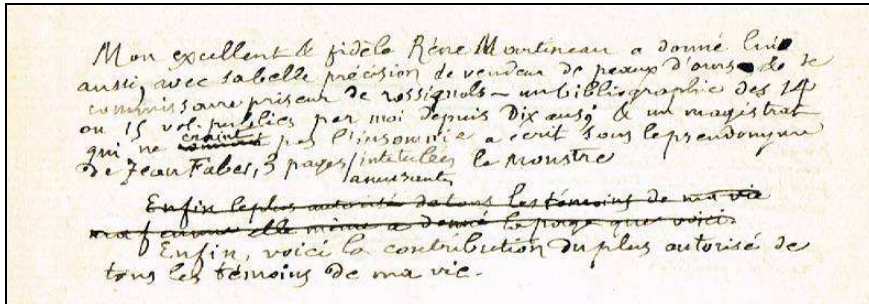 Mon excellent & fidèle Réne Martineau a donné lui
aussi, avec sa belle précision de vendeur de peaux d'ours & de
commissaire priseur de rossignols – un bibliographie des 14
ou 15 vol. publiés par moi depuis Dix ans; & un magistrat
qui ne craint pas l'insomnie a écrit sous le pseudonyme
de Jean Faber, 3 pages intitulées le Monstre
amusantes
Enfin le plus autorisé de tous les témoins de ma vie
ma femme elle même a donné la page que voici.
Enfin, voici la contribution du plus autorisé de
tous les témoins de ma vie.